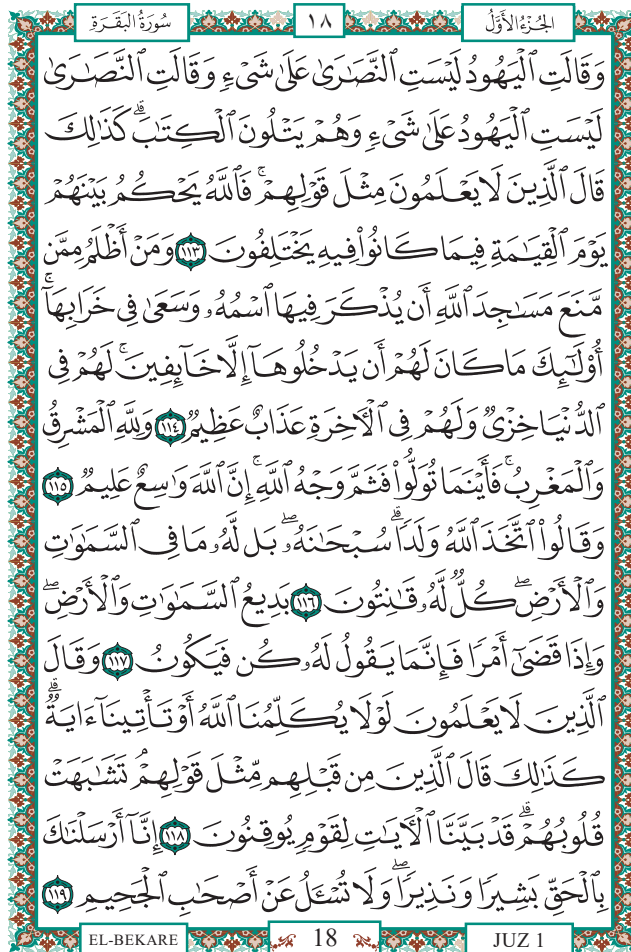 الجُزْءُ الأَوَّلُ ١٨ سُورَةُ البَقَرَةِ
وَقَالَتِ ٱلْيَهُودُ لَيْسَتِ ٱلنَّصَـٰرَىٰ عَلَىٰ شَىْءٍ وَقَالَتِ ٱلنَّصَـٰرَىٰ
لَيْسَتِ ٱلْيَهُودُ عَلَىٰ شَىْءٍ وَهُمْ يَتْلُونَ ٱلْكِتَـٰبَ ۗ كَذَٰلِكَ
قَالَ ٱلَّذِينَ لَا يَعْلَمُونَ مِثْلَ قَوْلِهِمْ ۚ فَٱللَّهُ يَحْكُمُ بَيْنَهُمْ
يَوْمَ ٱلْقِيَـٰمَةِ فِيمَا كَانُوا۟ فِيهِ يَخْتَلِفُونَ ١١٣ وَمَنْ أَظْلَمُ مِمَّن
مَّنَعَ مَسَـٰجِدَ ٱللَّهِ أَن يُذْكَرَ فِيهَا ٱسْمُهُۥ وَسَعَىٰ فِى خَرَابِهَآ ۚ
أُو۟لَـٰٓئِكَ مَا كَانَ لَهُمْ أَن يَدْخُلُوهَآ إِلَّا خَآئِفِينَ ۚ لَهُمْ فِى
ٱلدُّنْيَا خِزْىٌ وَلَهُمْ فِى ٱلْـَٔاخِرَةِ عَذَابٌ عَظِيمٌ ١١٤ وَلِلَّهِ ٱلْمَشْرِقُ
وَٱلْمَغْرِبُ ۚ فَأَيْنَمَا تُوَلُّوا۟ فَثَمَّ وَجْهُ ٱللَّهِ ۚ إِنَّ ٱللَّهَ وَٰسِعٌ عَلِيمٌ ١١٥
وَقَالُوا۟ ٱتَّخَذَ ٱللَّهُ وَلَدًا ۗ سُبْحَـٰنَهُۥ ۖ بَل لَّهُۥ مَا فِى ٱلسَّمَـٰوَٰتِ
وَٱلْأَرْضِ ۖ كُلٌّ لَّهُۥ قَـٰنِتُونَ ١١٦ بَدِيعُ ٱلسَّمَـٰوَٰتِ وَٱلْأَرْضِ ۖ
وَإِذَا قَضَىٰٓ أَمْرًا فَإِنَّمَا يَقُولُ لَهُۥ كُن فَيَكُونُ ١١٧ وَقَالَ
ٱلَّذِينَ لَا يَعْلَمُونَ لَوْلَا يُكَلِّمُنَا ٱللَّهُ أَوْ تَأْتِينَآ ءَايَةٌ ۗ
كَذَٰلِكَ قَالَ ٱلَّذِينَ مِن قَبْلِهِم مِّثْلَ قَوْلِهِمْ ۘ تَشَـٰبَهَتْ
قُلُوبُهُمْ ۗ قَدْ بَيَّنَّا ٱلْـَٔايَـٰتِ لِقَوْمٍ يُوقِنُونَ ١١٨ إِنَّآ أَرْسَلْنَـٰكَ
بِٱلْحَقِّ بَشِيرًا وَنَذِيرًا ۖ وَلَا تُسْـَٔلُ عَنْ أَصْحَـٰبِ ٱلْجَحِيمِ ١١٩
EL-BEKARE 18 JUZ 1